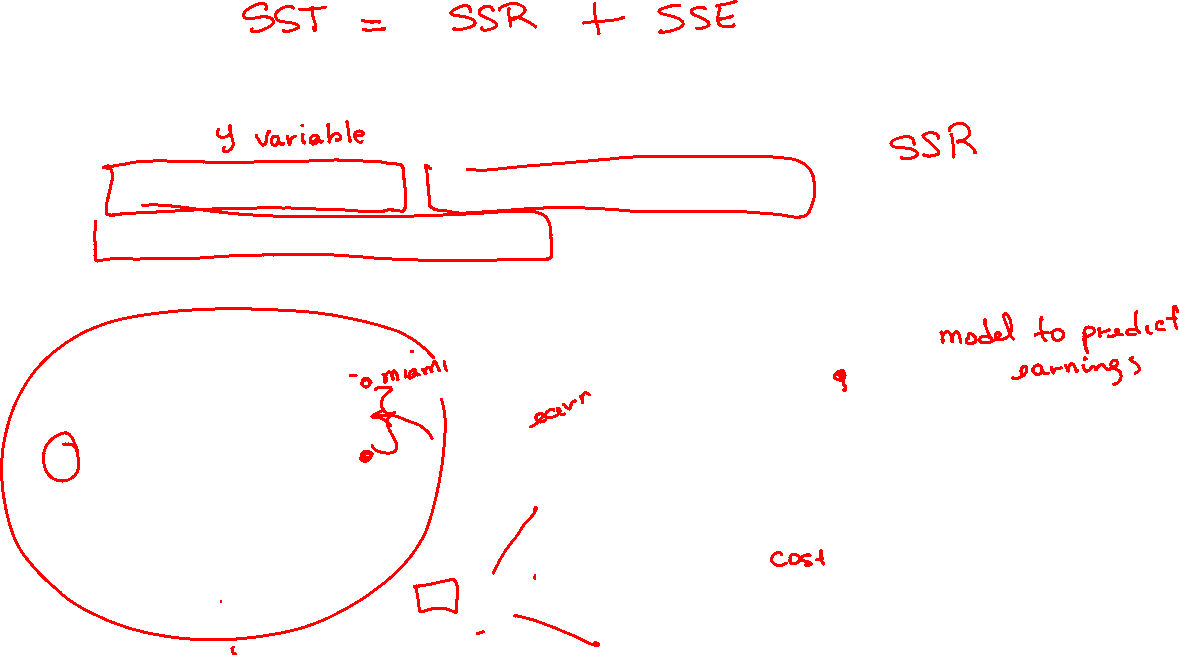 SST = SSR + SSE
y variable
SSR
model to predict
earnings
miami
earn
cost